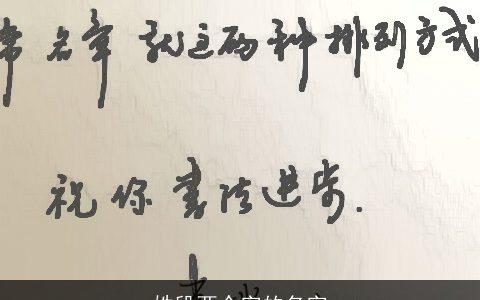 常名章就这两种排列方式
祝你书法进步.
姓段两个字的名字